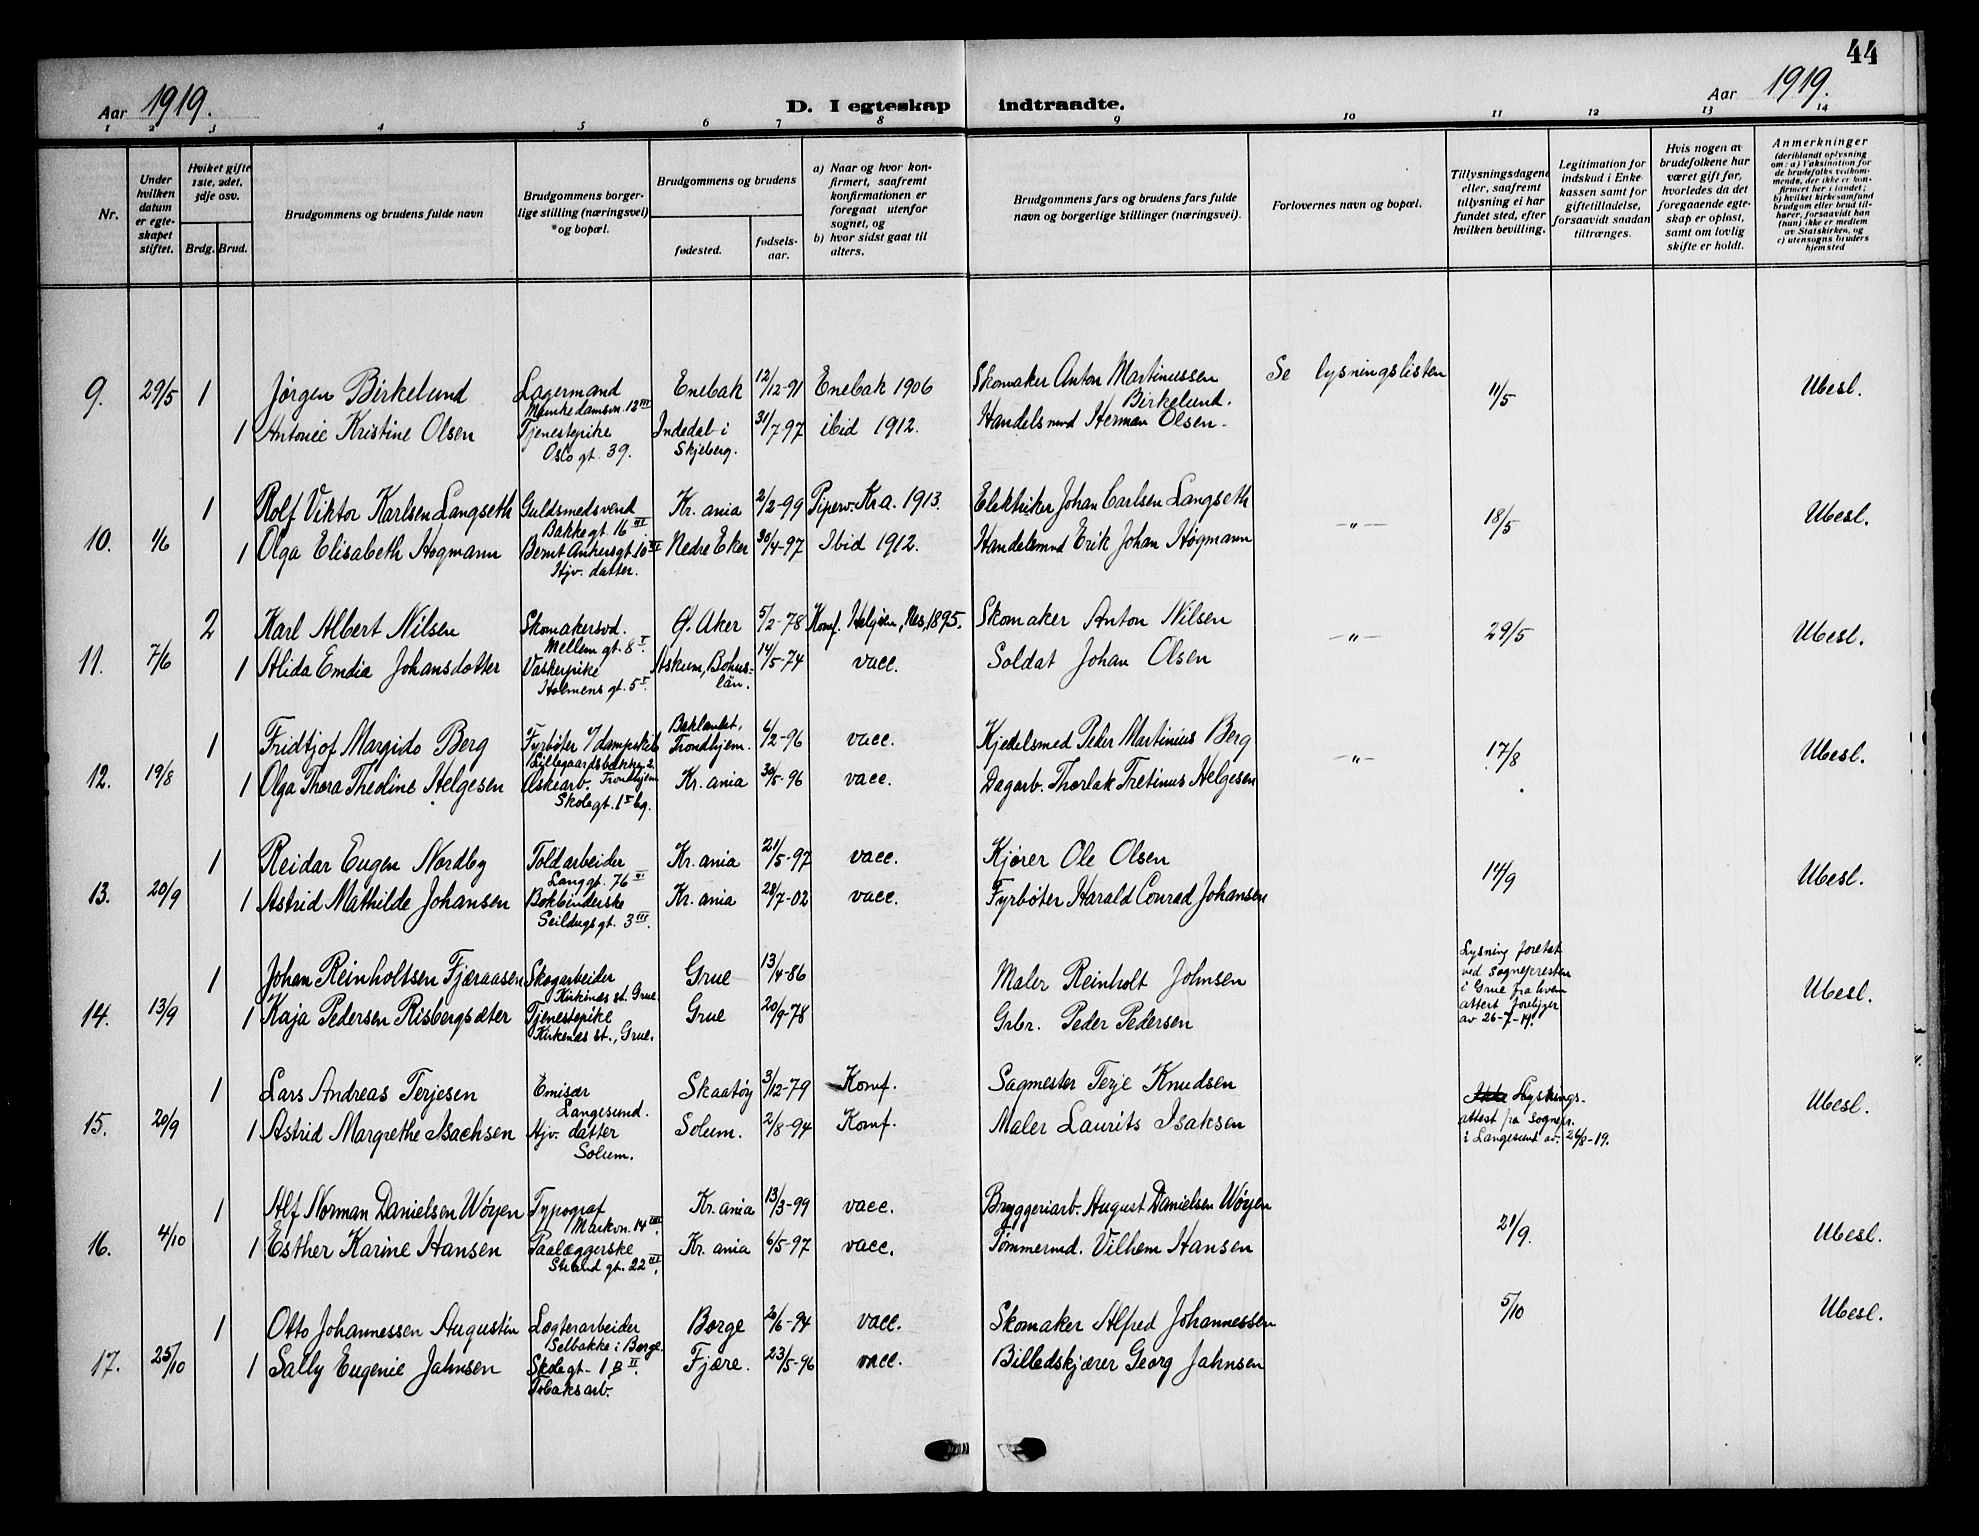 44
Aar 1919.
D. I egteskap indtraadte.
Aar 1919.
1 2 3 4 5 6 7 8 9 10 11 12 13 14
Nr.
Under hvilken datum er egteskapet stiftet.
Hviket gifte 1ste, 2det, 3dje osv.
Brdg. Brud.
Brudgommens og brudens fulde navn
Brudgommens borgerlige stilling (næringsvei) og bopæl.
Brudgommens og brudens
fødested.
fødselsaar.
a) Naar og hvor konfirmert, saafremt konfirmationen er foregaat utenfor sognet, og
b) hvor sidst gaat til alters.
Brudgommens fars og brudens fars fulde navn og borgerlige stillinger (næringsvei).
Forlovernes navn og bopæl.
Tillysningsdagene eller, saafremt tillysning ei har fundet sted, efter hvilken bevilling.
Legitimation for indskud i Enkekassen samt for giftetilladelse, forsaavidt saadan tiltrænges.
Hvis nogen av brudefolkene har været gift før, hvorledes da det foregaaende egteskap er opløst, samt om lovlig skifte er holdt.
Anmerkninger
(deriblandt oplysning om: a) Vaksination for de brudefolks vedkommende, der ikke er konfirmert her i landet; b) hvilket kirkesamfund brudgom eller brud tilhører, forsaavidt han (hun) ikke er medlem av Statskirken, og c) utensogns bruders hjemsted
9. 29/5 1 Jørgen Birkelund Lagermand Munkedamsvn. 12 III Enebak 12/12-91 Enebak 1906 Skomaker Anton Martinussen Birkelund. Se lysningslisten 11/5 Ubesl.
1 Antonie Kristine Olsen Tjenestepike Oslo gt. 39. Indedal i Skjeberg. 31/7-97 ibid 1912. Handelsmnd Herman Olsen.
10. 1/6 1 Rolf Viktor Karlsen Langseth Guldsmedsvend Bakkegt 16 III Kr.ania 2/2-99 Piperv. Kra. 1913. Elektriker Johan Carlsen Langseth -"- 18/5 Ubesl.
1 Olga Elisabeth Høgmann Bernt Ankersgt. 10 Hjv. datter. Nedre Eker 30/4-97 Ibid 1912. Handelsmnd Erik Johan Høgmann
11. 7/6 2 Karl Albert Nilsen Skomakersvd. Mellem gt. 8 I. Ø. Aker 5/2-78 Konf. Helgøen, Nes, 1895. Skomaker Anton Nilsen -"- 29/5 Ubesl.
1 Alida Emdia Johansdotter Vaskepike Holmens gt. 5 I. Askum, Bohuslän. 14/5-74 vacc. Soldat Johan Olsen
12. 19/8 1 Fridtjof Margido Berg Fyrbøter i/dampskib Lillegaardsbakken 2. Trondhjem Baklandet, Trondhjem. 6/2-96 vacc. Kjedelsmed Peder Martinius Berg -"- 17/8 Ubesl.
1 Olga Thora Theoline Helgesen Æskearb. Skolegt. 1 I bg. Kr.ania 30/5-96 vacc. Dagarb. Thorlak Tretinus Helgesen
13. 20/9 1 Reidar Eugen Nordby Toldarbeider Langgt. 76 Kr.ania 21/5-97 vacc. Kjører Ole Olsen 14/9 Ubesl.
1 Astrid Mathilde Johansen Bokbinderske Seildugsgt. 3 III. Kr.ania 28/7-02 vacc. Fyrbøter Harald Conrad Johansen
14. 13/9 1 Johan Reinholtsen Fjæraasen Skogarbeider Kirkenæs st. Grue. Grue 13/4-86 Maler Reinholt Johnsen Lysning foretat ved sognepresten i Grue fra hvem attest foreligger av 26-7-19. Ubesl.
1 Kaja Pedersen Risbergsæter Tjenestepike Kirkenæs st., Grue. Grue 20/9-78 Grbr. Peder Pedersen
15. 20/9 1 Lars Andreas Terjesen Emisær Langesund. Skaatøy 3/12-79 Konf. Sagmester Terje Knudsen Lysningsattest fra Sognepr. i Langesund av. 26/8-19. Ubesl.
1 Astrid Margrethe Isachsen Hjv. datter Solum. Solum. 2/8-94 Konf. Maler Laurits Isaksen
16. 4/10 1 Alf Norman Danielsen Wøyen Typograf Markvn. 14 Kr.ania 13/3-99 vacc. Bryggeriarb. August Danielsen Wøyen 21/9. Ubesl.
1 Esther Karine Hansen Paalæggerske Strand gt. 22 Kr.ania 6/5-97 vacc. Tømmermd. Vilhem Hansen
17. 25/10 1 Otto Johannessen Augustin Lægterarbeider Selbakke i Borge. Borge 20/6-94 vacc. Skomaker Alfred Johannessen 5/10 Ubesl.
1 Sally Eugenie Jahnsen Skolegt- 18 II. Tobaksarb. Fjære. 23/5-96 vacc. Billedskjærer Georg Jahnsen